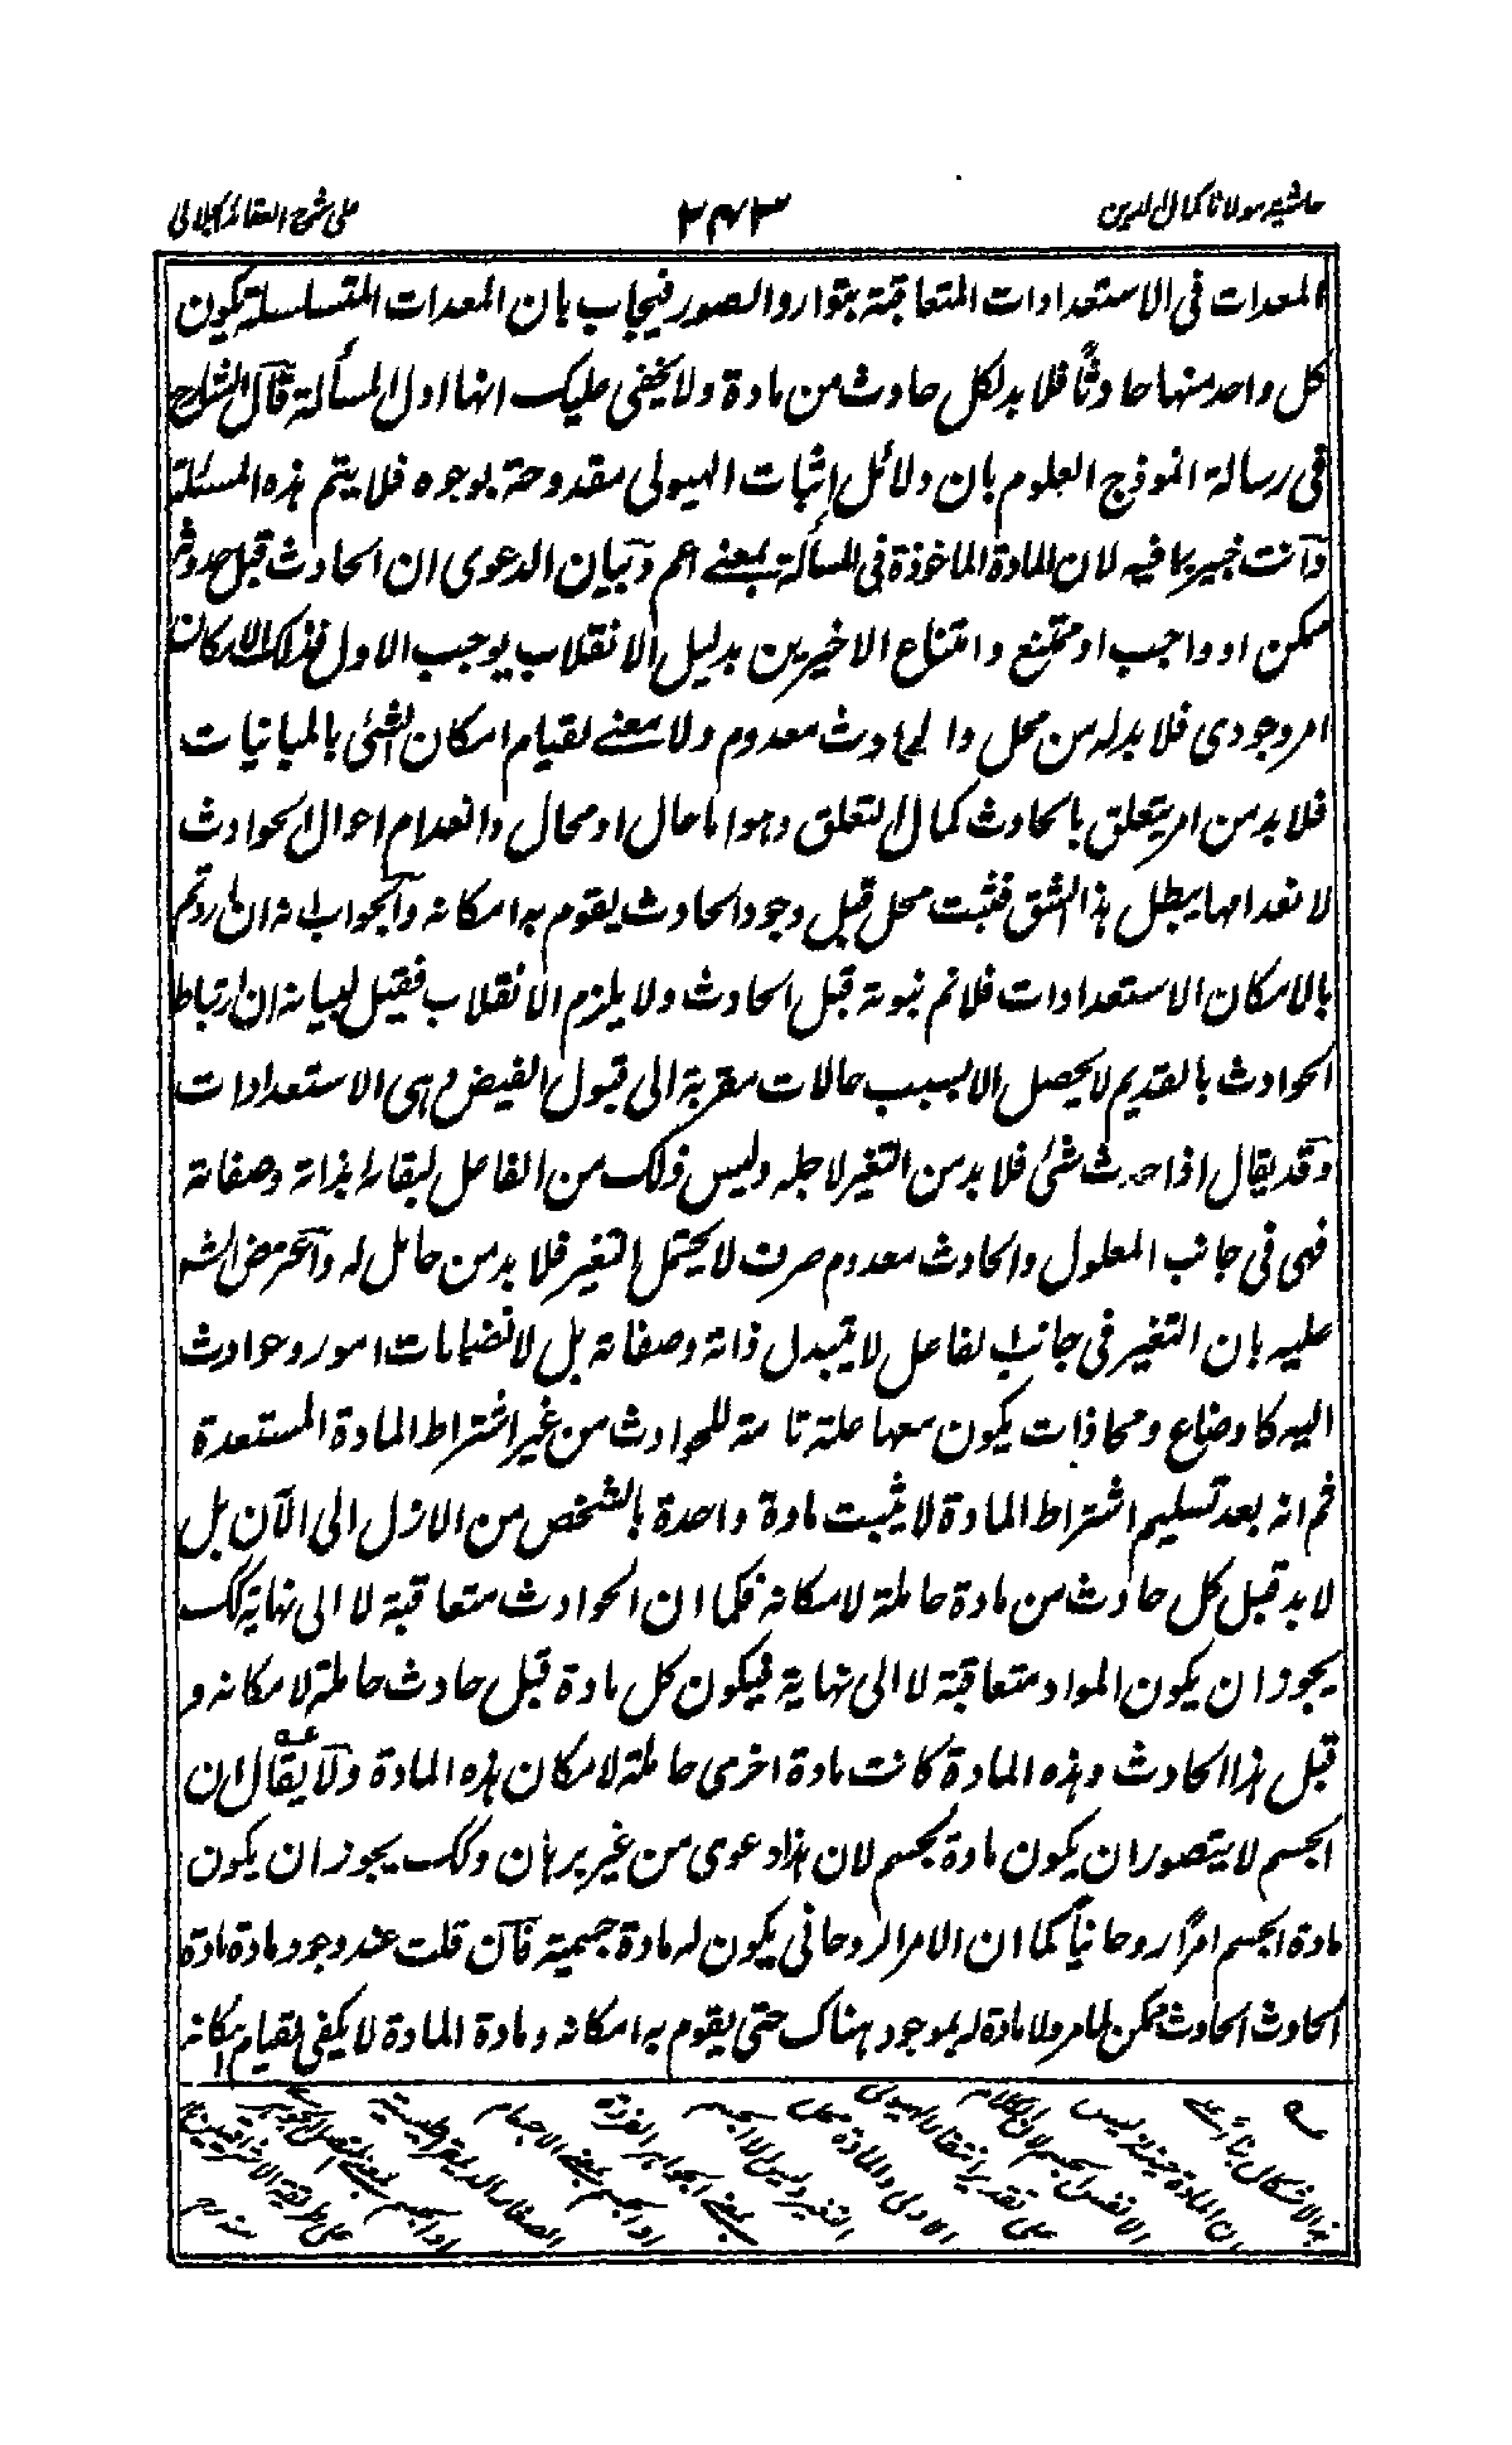 حاشیہ مولانا کمال الدین
٢٤٣
علی شرح العقائد الجلالی
المعدات فی الاستعدادات المتعاقبۃ بتوارد الصور فیجاب بان المعدات المتسلسلۃ یکون
کل واحد منہا حادثاً فلا بد لکل حادث من مادۃ ولا یخفی علیک انہا اول المسألۃ قال الشارح
فی رسالۃ انموذج العلوم بان دلائل إثبات الہیولی مقدوحۃ بوجوہ فلا یتم ہذہ المسئلۃ
وانت خبیر بما فیہ لان المادۃ الماخوذۃ فی المسألۃ بمعنے اعم وبیان الدعوی ان الحادث قبل حدوثہ
ممکن او واجب او ممتنع وامتناع الاخیرین بدلیل الانقلاب یوجب الاول فذلک الامکان
امر وجودی فلا بد لہ من محل والحادث معدوم ولا معنے لقیام امکان الشئ بالمباینات
فلا بد من امر یتعلق بالحادث کمال التعلق وہو اما حال او محال وانعدام احوال الحوادث
لانعدامہا یبطل ہذا الشق فثبت محل قبل وجود الحادث یقوم بہ امکانہ والجواب انہ ان اردتم
بالامکان الاستعدادات فلانم ثبوتہ قبل الحادث ولا یلزم الانقلاب فقیل لبیانہ ان ارتباط
الحوادث بالقدیم لا یحصل الا بسبب حالات مقربۃ الی قبول الفیض وہی الاستعدادات
وقد یقال اذا حدث شئ فلا بد من التغیر لاجلہ ولیس ذلک من الفاعل لبقائہ بذاتہ وصفاتہ
فہی فی جانب المعلول والحادث معدوم صرف لا یحتمل التغیر فلا بد من حامل لہ واعترض الشہ
علیہ بان التغیر فی جانب الفاعل لا یتبدل ذاتہ وصفاتہ بل لانضمامات امور وحوادث
الیہ کاوضاع ومحاذات یکون معہا علۃ تامۃ للحوادث من غیر اشتراط المادۃ المستعدۃ
ثم انہ بعد تسلیم اشتراط المادۃ لا یثبت مادۃ واحدۃ بالشخص من الازل الی الآن بل
لا بد قبل کل حادث من مادۃ حاملۃ لامکانہ فکما ان الحوادث متعاقبۃ لا الی نہایۃ کک
یجوز ان یکون المواد متعاقبۃ لا الی نہایۃ فیکون کل مادۃ قبل حادث حاملۃ لامکانہ و
قبل ہذا الحادث وہذہ المادۃ کانت مادۃ اخری حاملۃ لامکان ہذہ المادۃ ولا یقال ان
الجسم لا یتصور ان یکون مادۃ بجسم لان ہذا دعوی من غیر برہان وکک یجوز ان یکون
مادۃ الجسم امراً روحانیاً کما ان الامر الروحانی یکون لہ مادۃ جسمیۃ فان قلت عند وجود مادۃ مادۃ
الحادث الحادث ممکن لما مر ولا مادۃ لہ بموجود ہناک حتی یقوم بہ امکانہ ومادۃ المادۃ لا یکفی لقیام امکانہ